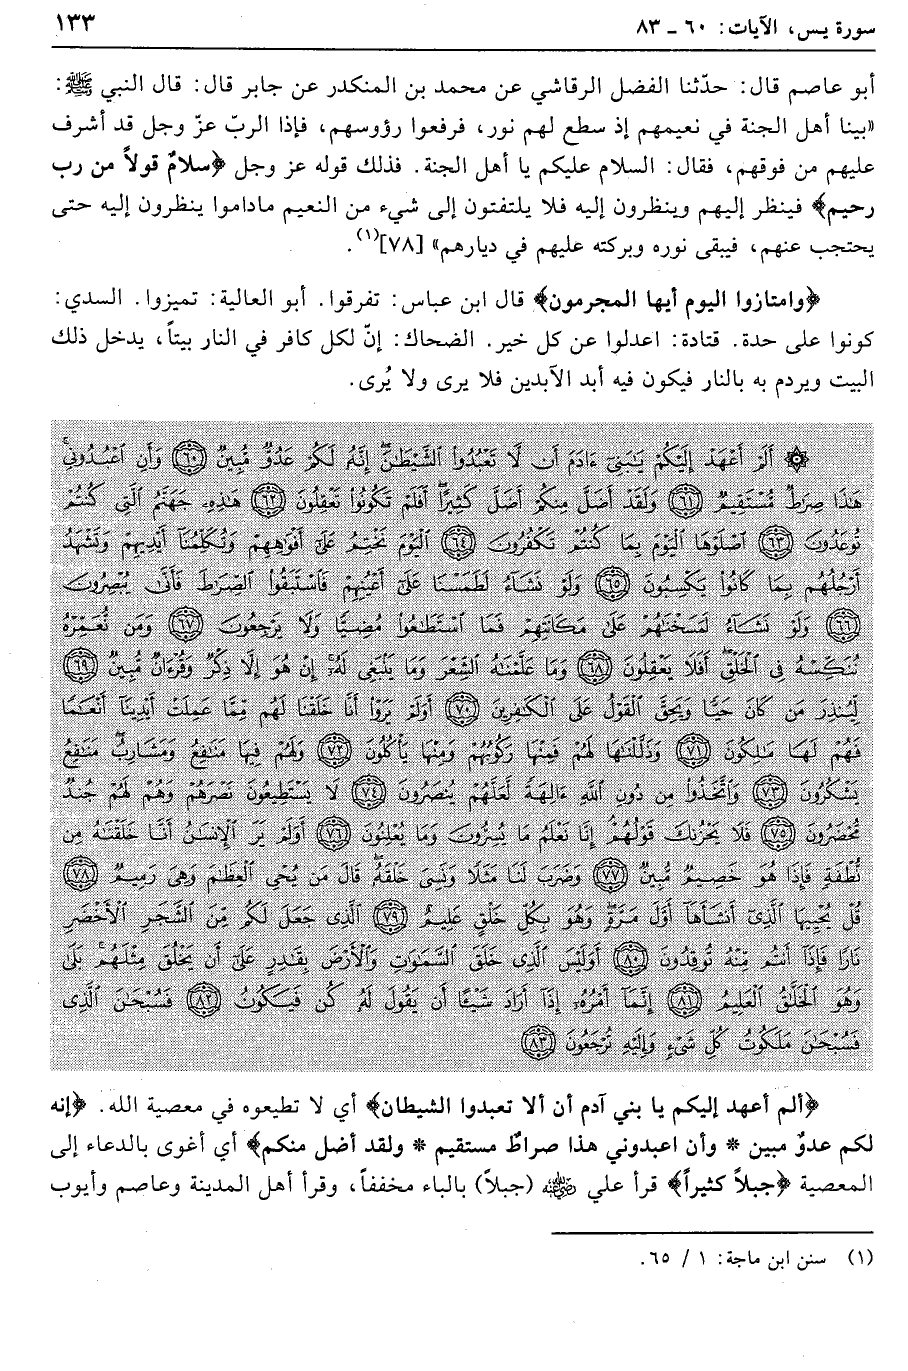 سورة يس، الآيات: ٦٠ ـ ٨٣ ١٣٣
أبو عاصم قال: حدّثنا الفضل الرقاشي عن محمد بن المنكدر عن جابر قال: قال النبي ﷺ:
«بينا أهل الجنة في نعيمهم إذ سطع لهم نور، فرفعوا رؤوسهم، فإذا الربّ عزّ وجل قد أشرف
عليهم من فوقهم، فقال: السلام عليكم يا أهل الجنة. فذلك قوله عز وجل ﴿سلامٌ قولاً من رب
رحيم﴾ فينظر إليهم وينظرون إليه فلا يلتفتون إلى شيء من النعيم ماداموا ينظرون إليه حتى
يحتجب عنهم، فيبقى نوره وبركته عليهم في ديارهم» [٧٨](١).
﴿وامتازوا اليوم أيها المجرمون﴾ قال ابن عباس: تفرقوا. أبو العالية: تميزوا. السدي:
كونوا على حدة. قتادة: اعدلوا عن كل خير. الضحاك: إنّ لكل كافر في النار بيتاً، يدخل ذلك
البيت ويردم به بالنار فيكون فيه أبد الآبدين فلا يرى ولا يُرى.
۞ أَلَمْ أَعْهَدْ إِلَيْكُمْ يَٰبَنِىٓ ءَادَمَ أَن لَّا تَعْبُدُوا۟ ٱلشَّيْطَٰنَ إِنَّهُۥ لَكُمْ عَدُوٌّ مُّبِينٌ ٦٠ وَأَنِ ٱعْبُدُونِى
هَٰذَا صِرَٰطٌ مُّسْتَقِيمٌ ٦١ وَلَقَدْ أَضَلَّ مِنكُمْ أَضَلَّ كَثِيرًا أَفَلَمْ تَكُونُوا۟ تَعْقِلُونَ ٦٢ هَٰذِهِۦ جَهَنَّمُ ٱلَّتِى كُنتُمْ
تُوعَدُونَ ٦٣ ٱصْلَوْهَا ٱلْيَوْمَ بِمَا كُنتُمْ تَكْفُرُونَ ٦٤ ٱلْيَوْمَ نَخْتِمُ عَلَىٰٓ أَفْوَٰهِهِمْ وَتُكَلِّمُنَآ أَيْدِيهِمْ وَتَشْهَدُ
أَرْجُلُهُم بِمَا كَانُوا۟ يَكْسِبُونَ ٦٥ وَلَوْ نَشَآءُ لَطَمَسْنَا عَلَىٰٓ أَعْيُنِهِمْ فَٱسْتَبَقُوا۟ ٱلصِّرَٰطَ فَأَنَّىٰ يُبْصِرُونَ
٦٦ وَلَوْ نَشَآءُ لَمَسَخْنَٰهُمْ عَلَىٰ مَكَانَتِهِمْ فَمَا ٱسْتَطَٰعُوا۟ مُضِيًّا وَلَا يَرْجِعُونَ ٦٧ وَمَن نُّعَمِّرْهُ
نُنَكِّسْهُ فِى ٱلْخَلْقِ أَفَلَا يَعْقِلُونَ ٦٨ وَمَا عَلَّمْنَٰهُ ٱلشِّعْرَ وَمَا يَنۢبَغِى لَهُۥٓ إِنْ هُوَ إِلَّا ذِكْرٌ وَقُرْءَانٌ مُّبِينٌ ٦٩
لِّيُنذِرَ مَن كَانَ حَيًّا وَيَحِقَّ ٱلْقَوْلُ عَلَى ٱلْكَٰفِرِينَ ٧٠ أَوَلَمْ يَرَوْا۟ أَنَّا خَلَقْنَا لَهُم مِّمَّا عَمِلَتْ أَيْدِينَآ أَنْعَٰمًا
فَهُمْ لَهَا مَٰلِكُونَ ٧١ وَذَلَّلْنَٰهَا لَهُمْ فَمِنْهَا رَكُوبُهُمْ وَمِنْهَا يَأْكُلُونَ ٧٢ وَلَهُمْ فِيهَا مَنَٰفِعُ وَمَشَارِبُ مَنَٰفِعُ
يَشْكُرُونَ ٧٣ وَٱتَّخَذُوا۟ مِن دُونِ ٱللَّهِ ءَالِهَةً لَّعَلَّهُمْ يُنصَرُونَ ٧٤ لَا يَسْتَطِيعُونَ نَصْرَهُمْ وَهُمْ لَهُمْ جُندٌ
مُّحْضَرُونَ ٧٥ فَلَا يَحْزُنكَ قَوْلُهُمْ إِنَّا نَعْلَمُ مَا يُسِرُّونَ وَمَا يُعْلِنُونَ ٧٦ أَوَلَمْ يَرَ ٱلْإِنسَٰنُ أَنَّا خَلَقْنَٰهُ مِن
نُّطْفَةٍ فَإِذَا هُوَ خَصِيمٌ مُّبِينٌ ٧٧ وَضَرَبَ لَنَا مَثَلًا وَنَسِىَ خَلْقَهُۥ قَالَ مَن يُحْىِ ٱلْعِظَٰمَ وَهِىَ رَمِيمٌ ٧٨
قُلْ يُحْيِيهَا ٱلَّذِىٓ أَنشَأَهَآ أَوَّلَ مَرَّةٍ وَهُوَ بِكُلِّ خَلْقٍ عَلِيمٌ ٧٩ ٱلَّذِى جَعَلَ لَكُم مِّنَ ٱلشَّجَرِ ٱلْأَخْضَرِ
نَارًا فَإِذَآ أَنتُم مِّنْهُ تُوقِدُونَ ٨٠ أَوَلَيْسَ ٱلَّذِى خَلَقَ ٱلسَّمَٰوَٰتِ وَٱلْأَرْضَ بِقَٰدِرٍ عَلَىٰٓ أَن يَخْلُقَ مِثْلَهُم بَلَىٰ
وَهُوَ ٱلْخَلَّٰقُ ٱلْعَلِيمُ ٨١ إِنَّمَآ أَمْرُهُۥٓ إِذَآ أَرَادَ شَيْـًٔا أَن يَقُولَ لَهُۥ كُن فَيَكُونُ ٨٢ فَسُبْحَٰنَ ٱلَّذِى
فَسُبْحَٰنَ مَلَكُوتُ كُلِّ شَىْءٍ وَإِلَيْهِ تُرْجَعُونَ ٨٣
﴿ألم أعهد إليكم يا بني آدم أن ألا تعبدوا الشيطان﴾ أي لا تطيعوه في معصية الله. ﴿إنه
لكم عدوٌ مبين * وأن اعبدوني هذا صراطٌ مستقيم * ولقد أضل منكم﴾ أي أغوى بالدعاء إلى
المعصية ﴿جبلاً كثيراً﴾ قرأ علي رضي الله عنه (جبلاً) بالباء مخففاً، وقرأ أهل المدينة وعاصم وأيوب
(١) سنن ابن ماجة: ١ / ٦٥.